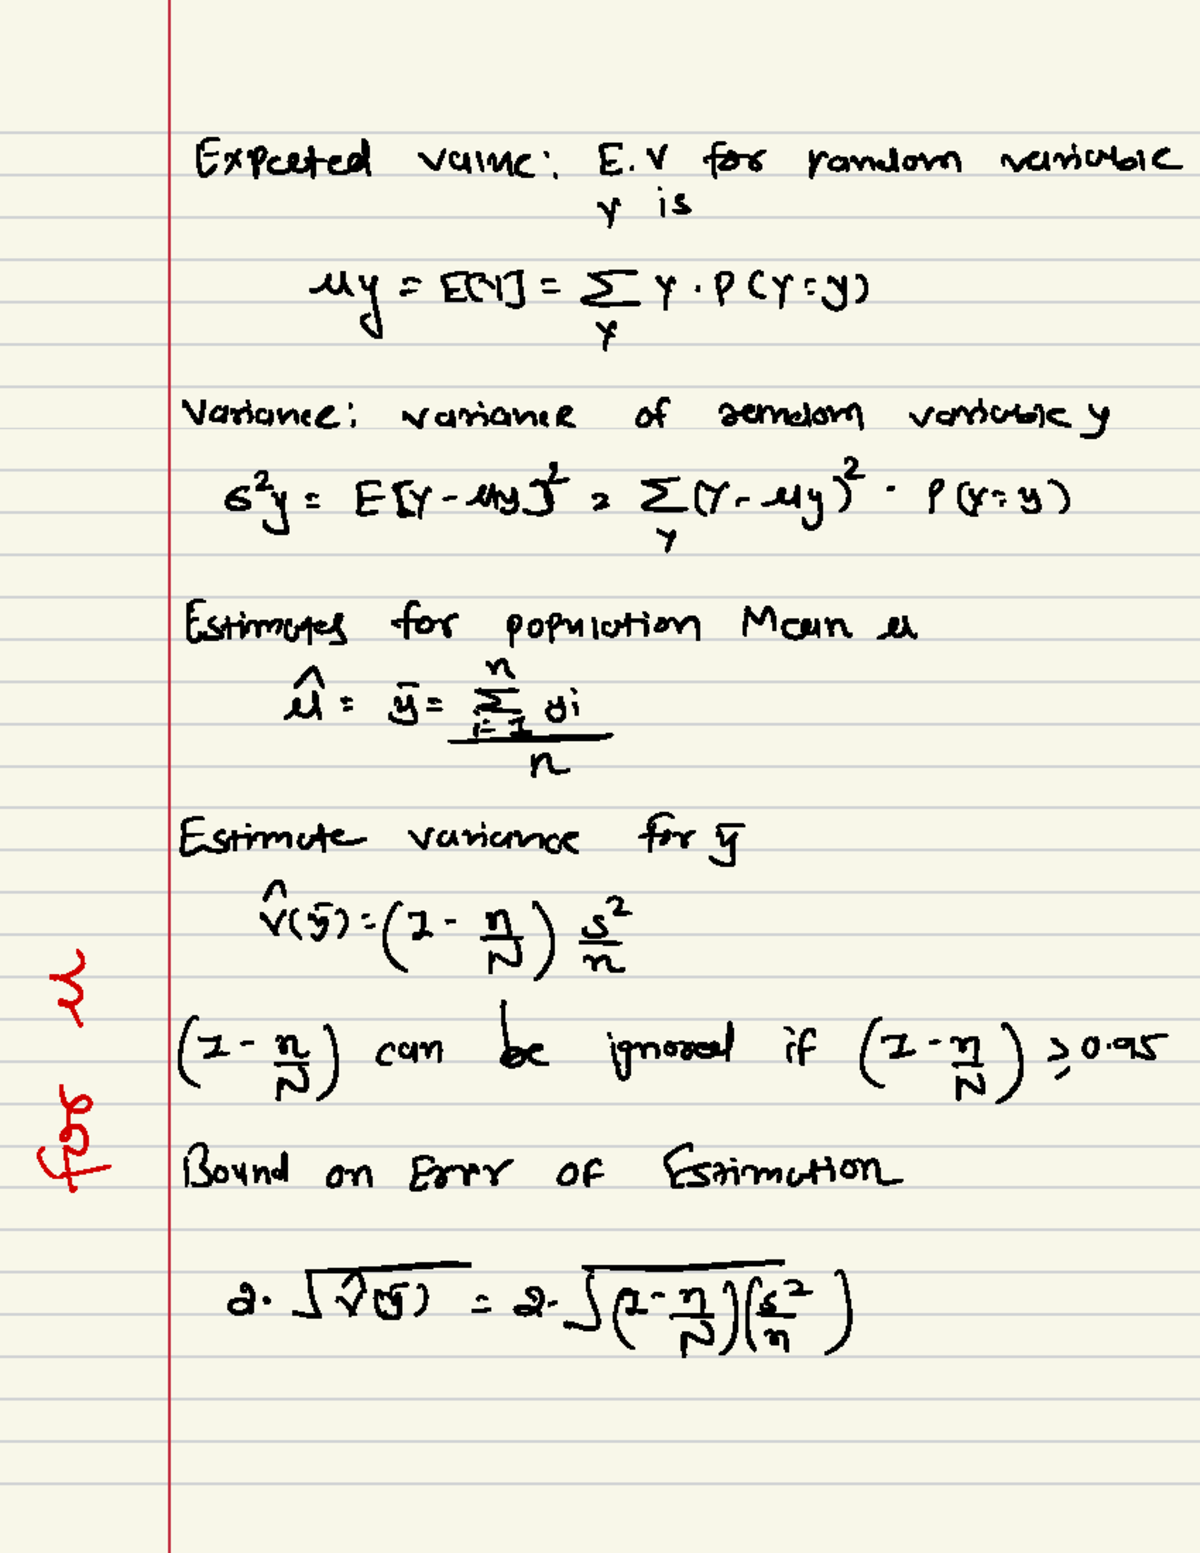 Expected value: E.V for random variable
Y is
μy = E[Y] = Σ_Y Y · P(Y=y)
Variance: variance of random variable y
σ²y = E[Y - μy]² = Σ_Y (Y - μy)² · P(Y=y)
Estimates for population Mean μ
μ̂ = ȳ = Σ_{i=1}^{n} yi / n
Estimate variance for ȳ
V̂(ȳ) = (1 - n/N) s²/n
(1 - n/N) can be ignored if (1 - n/N) ≥ 0.95
Bound on Error of Estimation
2 · √V̂(ȳ) = 2 · √(1 - n/N)(s²/n)
for μ